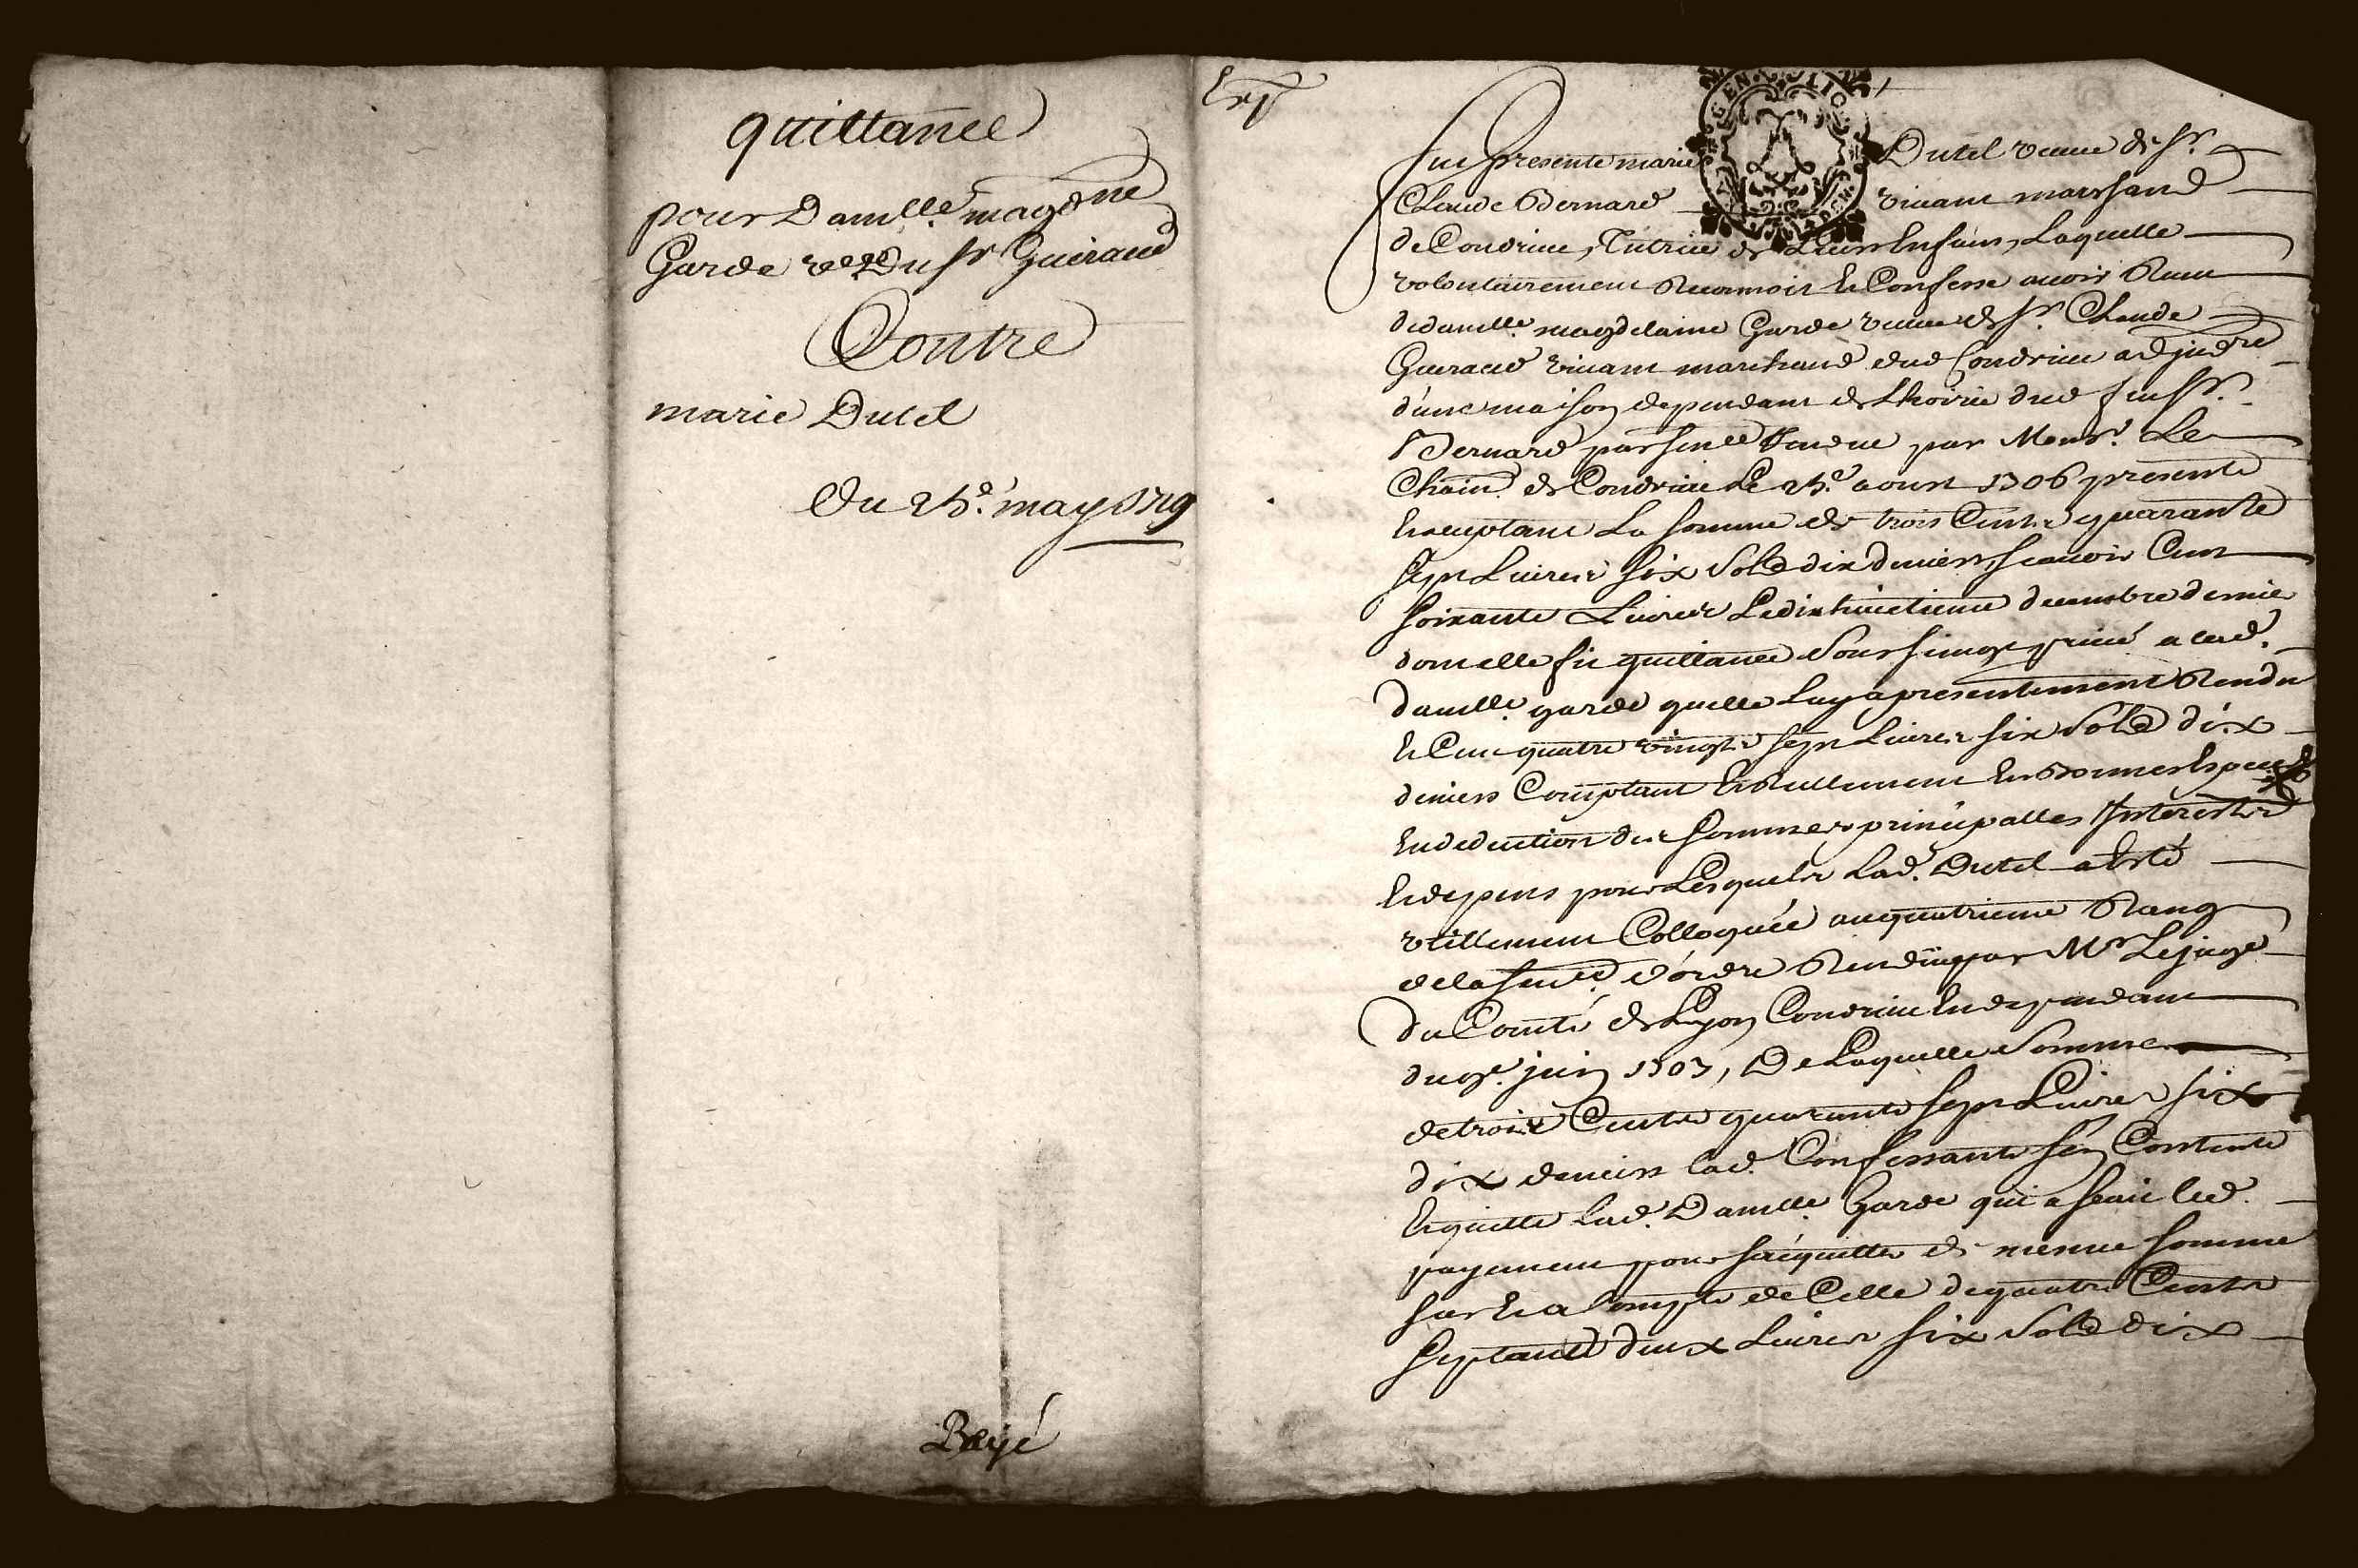 quittance
pour Damlle. magdne
Garde veve Du sr Guiraud
Contre
marie Dutel
Du 25e. may 1719
Payé
Exp
GEN LIO
fut presente marie Dutel veuue de sr.
Claude Bernard viuant marchand
de Condrieu, Tutrice de Leurs Enfans, Laquelle
volontairement Reconnoit et Confesse auoir Receu
de damlle. magdelaine Garde veuue de sr. Claude
Gueraud viuant marchand dud Condrieu adjudre
d'une maison dependant de Lhoirie dud feu sr.
Bernard par sence Rendue par Monsr. Le
Chain. de Condrieu Le 25e. aoust 1706 presente
et acceptant La somme de trois Cents quarante
sept Liures six Sols dix deniers, scauoir Cent
soixante Liures Le dix huictieme decembre dernier
dont elle fit quittance Sous seing priué a lad.
damlle. garde quelle Luy a presentement Rendu
et Cent quatre vingts sept Liures six Sols dix
deniers Comptant et Reellement en bonnes Especes
en deduction des sommes principalles Interests
et depens pour Lesquels Lad. Dutel a Esté
vtillement Colloquée au quatrieme Rang
de la sence. d'ordre Rendue par Mr Le juge
du Comté de Lyon Condrieu en dependant
du 9e. juin 1707, De Laquelle Somme
de trois Cents quarante sept Liures six
dix deniers lad. Confessante s'en Contente
et quitte Lad. Damlle. Garde qui a fait led.
payement pour s'acquitter de mesme somme
sur et a Compte de Celle de quatre Cents
septante deux Liures six Sols dix